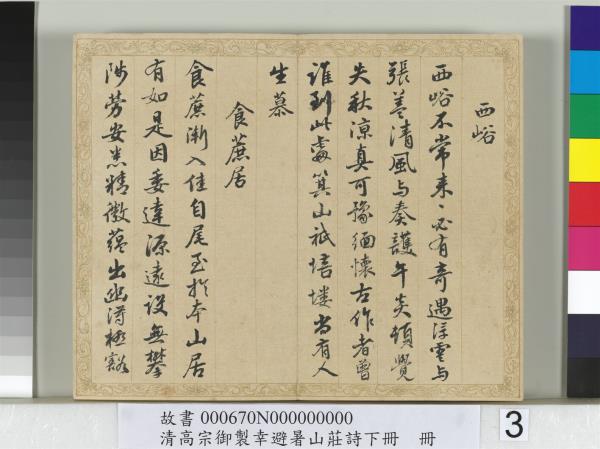 西峪
西峪不常來〻必有奇遇浮雲与
張蓋清風与奏護午炎頓覺
失秋涼真可豫緬懷古作者曾
誰到此處箕山祇培塿尚有人
生慕
食蔗居
食蔗漸入佳自尾至於本山居
有如是因委達源遠設無攀
陟勞安悉精微蘊出幽得極豁
故書 000670N000000000
清高宗御製幸避暑山莊詩下冊 冊
3